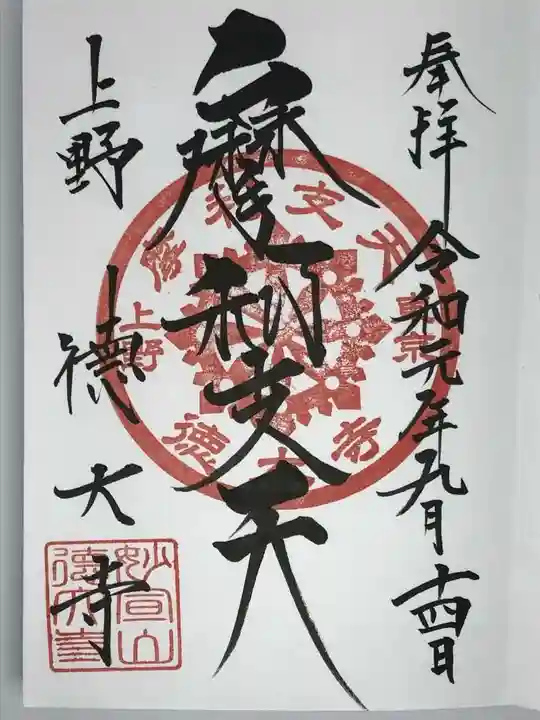 奉拝 令和元年九月十四日
摩利支天
上野 徳大寺
摩利支天
東京
上野
徳大寺
妙宣山
徳大寺